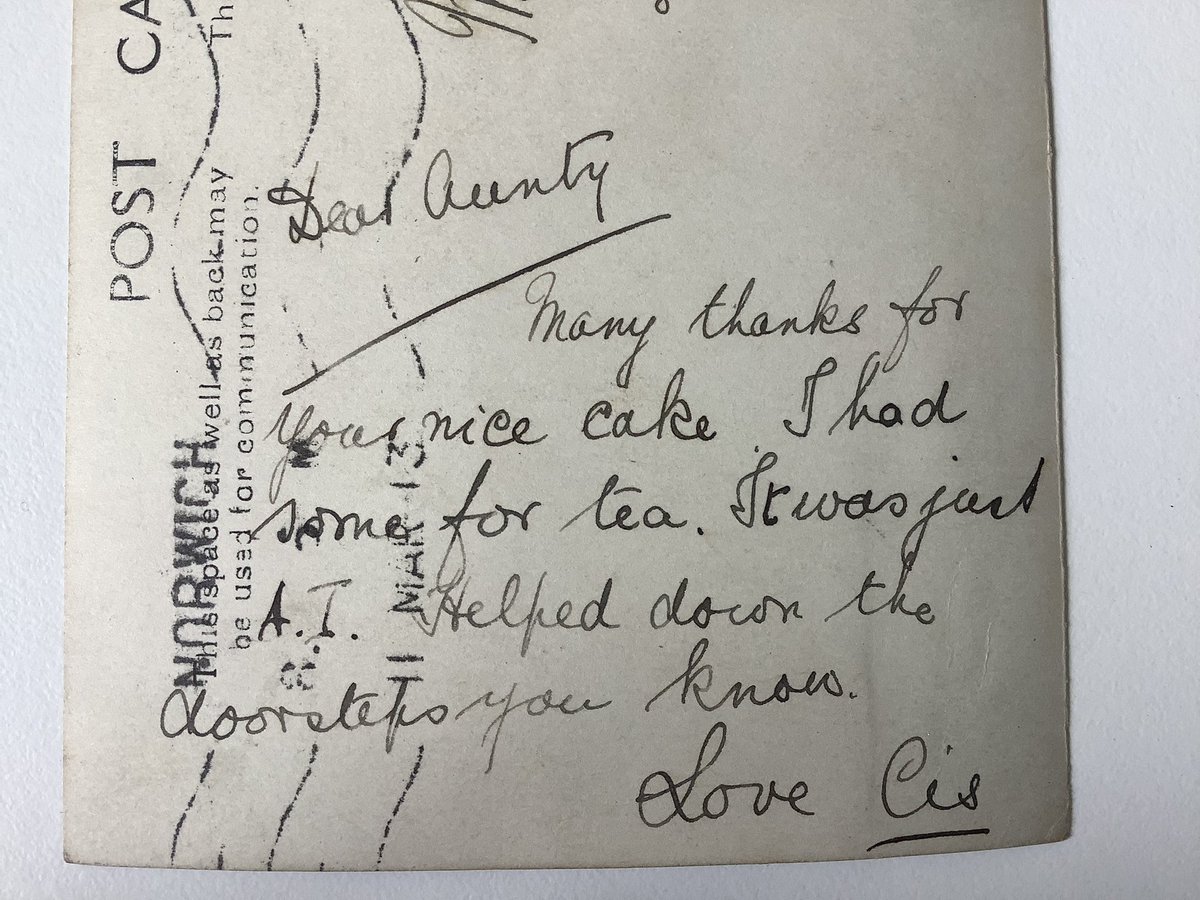 POST CA
This space as well as back may Th
be used for communication.
NORWICH
11 MAR 13
Dear Aunty
Many thanks for
your nice cake. I had
some for tea. It was just
A.I. Helped down the
doorsteps you know.
Love Cis